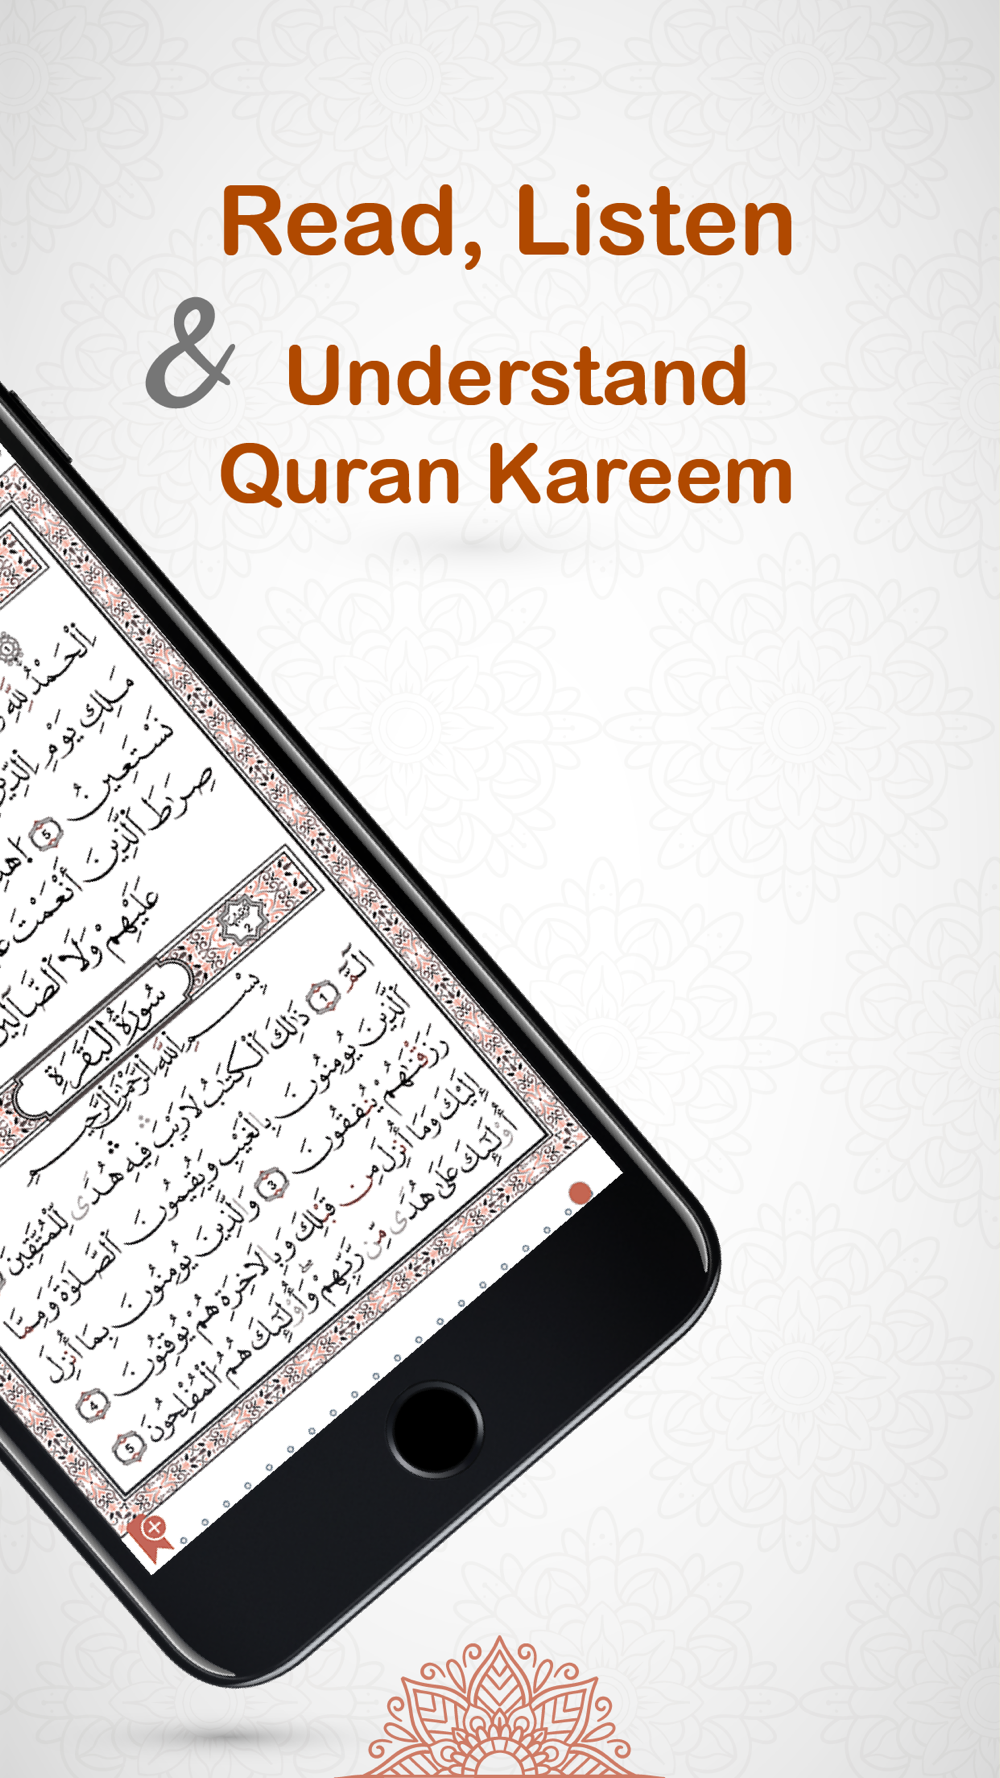 Read, Listen
& Understand
Quran Kareem
1
اَ۬لْحَمْدُ لِلهِ
مَلِكِ يَوْمِ اِ۬لدِّينِ
نَسْتَعِينُ 5
صِرَٰطَ اَ۬لذِينَ أَنْعَمْتَ
عَلَيْهِمْ وَلَا اَ۬لضَّآلِّينَ
سُورَةُ اُ۬لْبَقَرَةِ 2
بِسْمِ اِ۬للَّهِ اِ۬لرَّحْمَٰنِ اِ۬لرَّحِيمِ
أَلَٓمِّٓ 1 ذَٰلِكَ اَ۬لْكِتَٰبُ لَا رَيْبَ فِيهِ هُدىً لِّلْمُتَّقِينَ
اَ۬لذِينَ يُومِنُونَ بِالْغَيْبِ وَيُقِيمُونَ اَ۬لصَّلَوٰةَ وَمِمَّا
رَزَقْنَٰهُمْ يُنفِقُونَ 3 وَالذِينَ يُومِنُونَ بِمَا أُنزِلَ
إِلَيْكَ وَمَا أُنزِلَ مِن قَبْلِكَ وَبِالَاخِرَةِ هُمْ يُوقِنُونَ 4
أُوْلَٰٓئِكَ عَلَىٰ هُدىً مِّن رَّبِّهِمْ وَأُوْلَٰٓئِكَ هُمُ اُ۬لْمُفْلِحُونَ 5